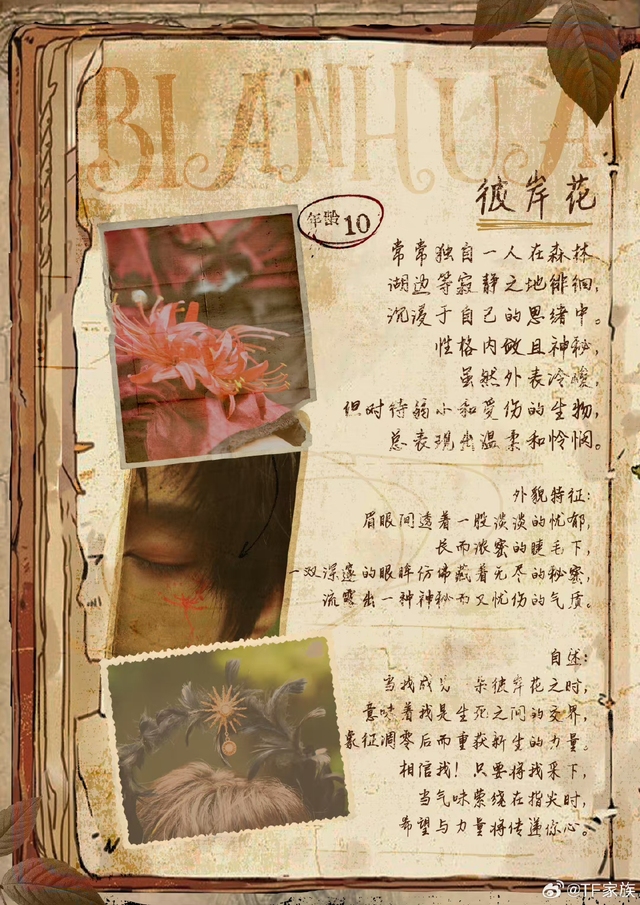 BIANHUA
彼岸花
年龄 10
常常独自一人在森林
湖边等寂静之地徘徊,
沉浸于自己的思绪中。
性格内敛且神秘,
虽然外表冷酸,
但对待弱小和受伤的生物,
总表现出温柔和怜悯。
外貌特征:
眉眼间透着一股淡淡的忧郁,
长而浓密的睫毛下,
一双深邃的眼眸仿佛藏着无尽的秘密,
流露出一种神秘而又忧伤的气质。
自述:
当我成为 朵彼岸花之时,
意味着我是生死之间的交界,
象征凋零后而重获新生的力量。
相信我!只要将我采下,
当气味萦绕在指尖时,
希望与力量将传递你心。
@TF家族